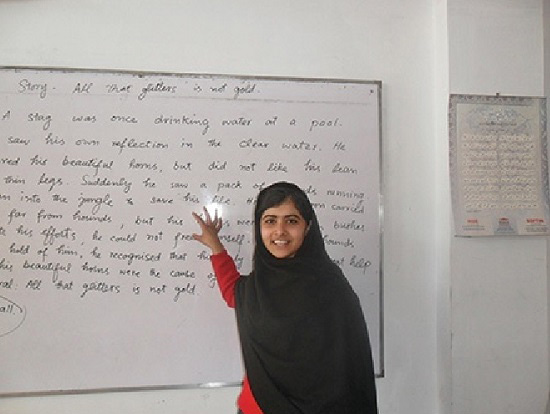 Story - All that glitters is not gold.
A stag was once drinking water at a pool.
saw his own reflection in the clear water. He
red his beautiful horns, but did not like his lean
thin legs. Suddenly he saw a pack of ds running
n into the jungle to save his life. H on carried
far from hounds, but his wer bushes
te his efforts, he could not free mself. hounds
hold of him, he recognised that his ly at help
his beautiful horns were the cause of
ral: All that glitters is not gold
all.